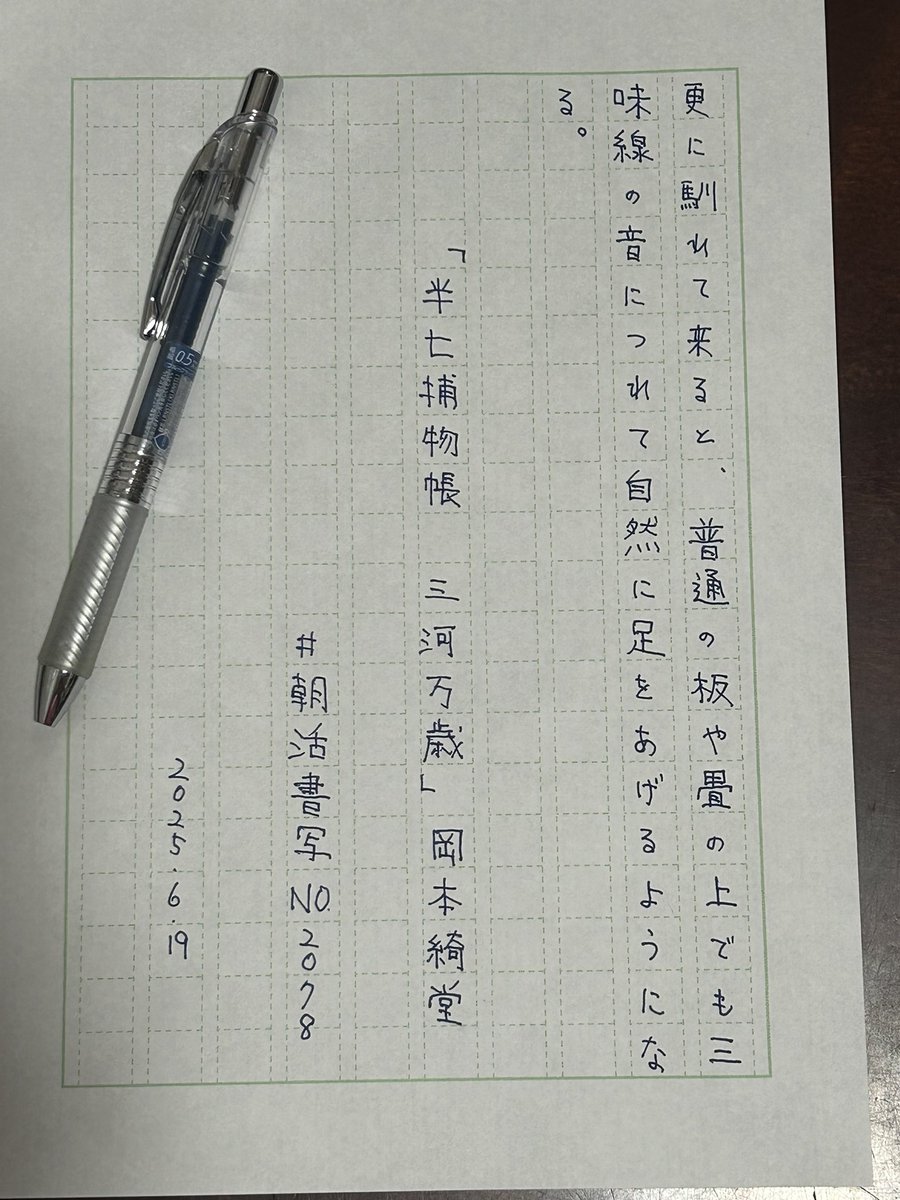 更に馴れて来ると、普通の板や畳の上でも三
味線の音につれて自然に足をあげるようにな
る。
「半七捕物帳　三河万歳」岡本綺堂
#朝活書写NO.2078
2025.6.19
05